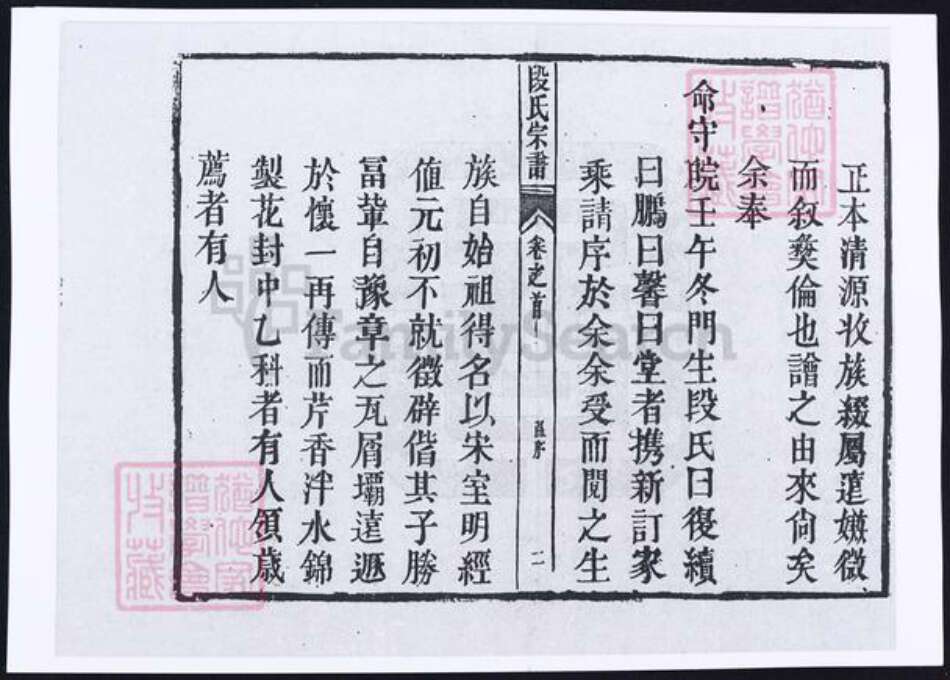 正本清源收族綴屬遠嫌微
而叙彝倫也譜之由來尙矣
余奉
命守皖壬午冬門生段氏曰復續
曰鵬曰馨曰堂者携新訂家
乘請序於余余受而閱之生
段氏宗譜
卷之首
序
二
族自始祖得名以宋室明經
値元初不就徵辟偕其子勝
冨輩自豫章之瓦屑壩遠遯
於懷一再傳而芹香泮水錦
製花封中乙科者有人領歲
薦者有人
FamilySearch